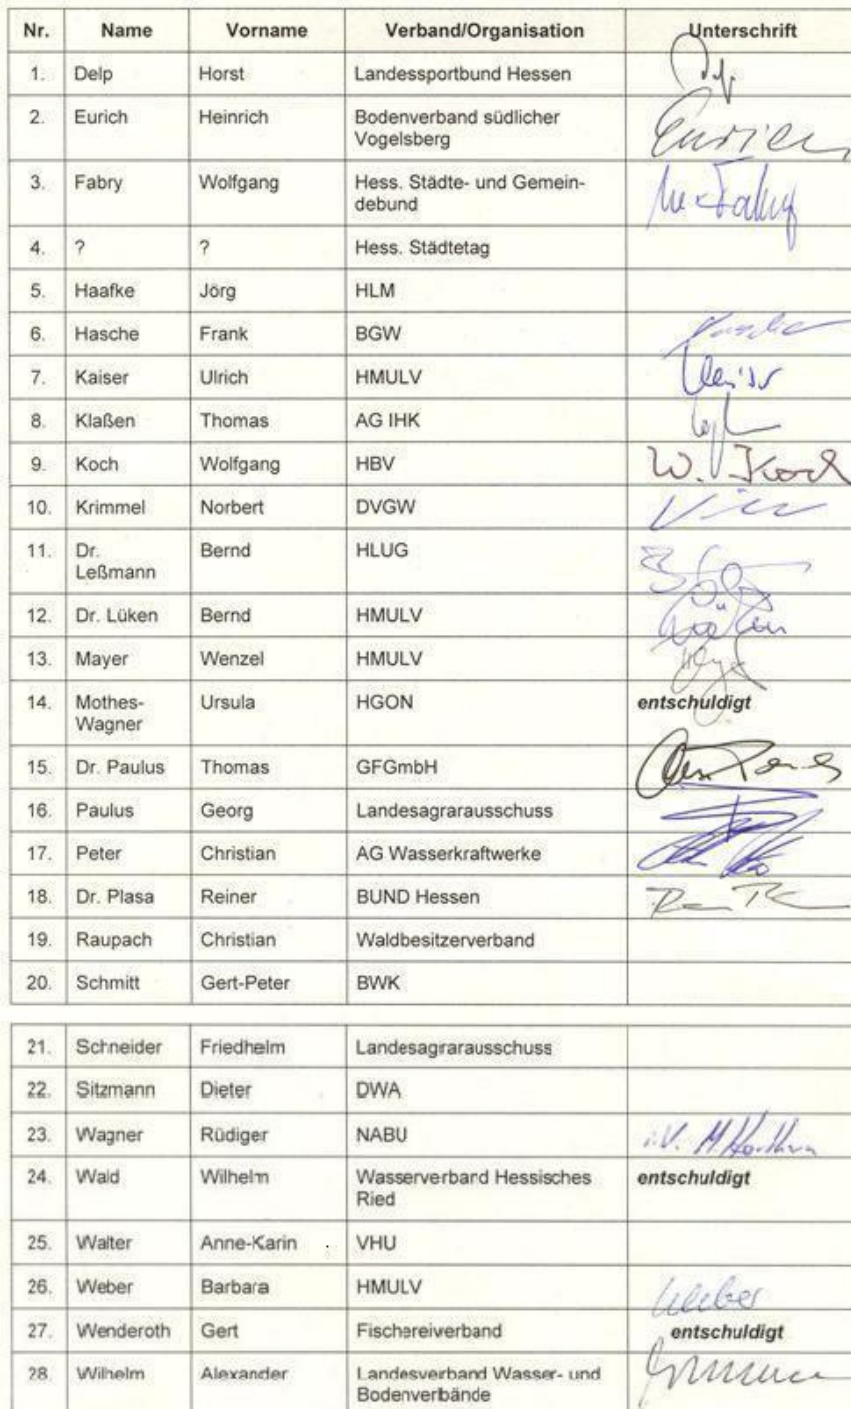 Nr. Name Vorname Verband/Organisation Unterschrift
1. Delp Horst Landessportbund Hessen
2. Eurich Heinrich Bodenverband südlicher
Vogelsberg Eurich
3. Fabry Wolfgang Hess. Städte- und Gemein-
debund Fabry
4. ? ? Hess. Städtetag
5. Haafke Jörg HLM
6. Hasche Frank BGW Hasche
7. Kaiser Ulrich HMULV Kaiser
8. Klaßen Thomas AG IHK
9. Koch Wolfgang HBV W. Koch
10. Krimmel Norbert DVGW
11. Dr. Bernd HLUG
Leßmann
12. Dr. Lüken Bernd HMULV
13. Mayer Wenzel HMULV
14. Mothes- Ursula HGON entschuldigt
Wagner
15. Dr. Paulus Thomas GFGmbH
16. Paulus Georg Landesagrarausschuss
17. Peter Christian AG Wasserkraftwerke
18. Dr. Plasa Reiner BUND Hessen
19. Raupach Christian Waldbesitzerverband
20. Schmitt Gert-Peter BWK
21. Schneider Friedhelm Landesagrarausschuss
22. Sitzmann Dieter DWA
23. Wagner Rüdiger NABU i.V. M.
24. Wald Wilhelm Wasserverband Hessisches entschuldigt
Ried
25. Walter Anne-Karin VHU
26. Weber Barbara HMULV Weber
27. Wenderoth Gert Fischereiverband entschuldigt
28. Wilhelm Alexander Landesverband Wasser- und
Bodenverbände